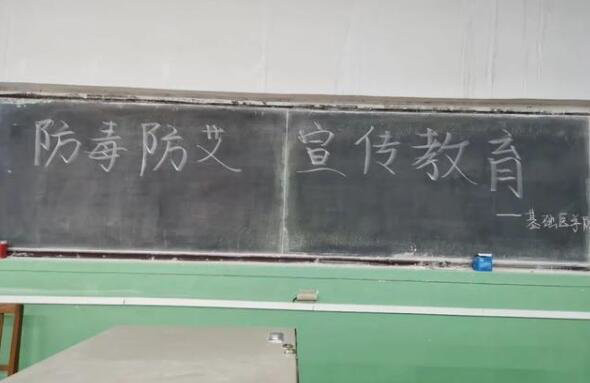 防毒防艾 宣传教育
—基础医学院